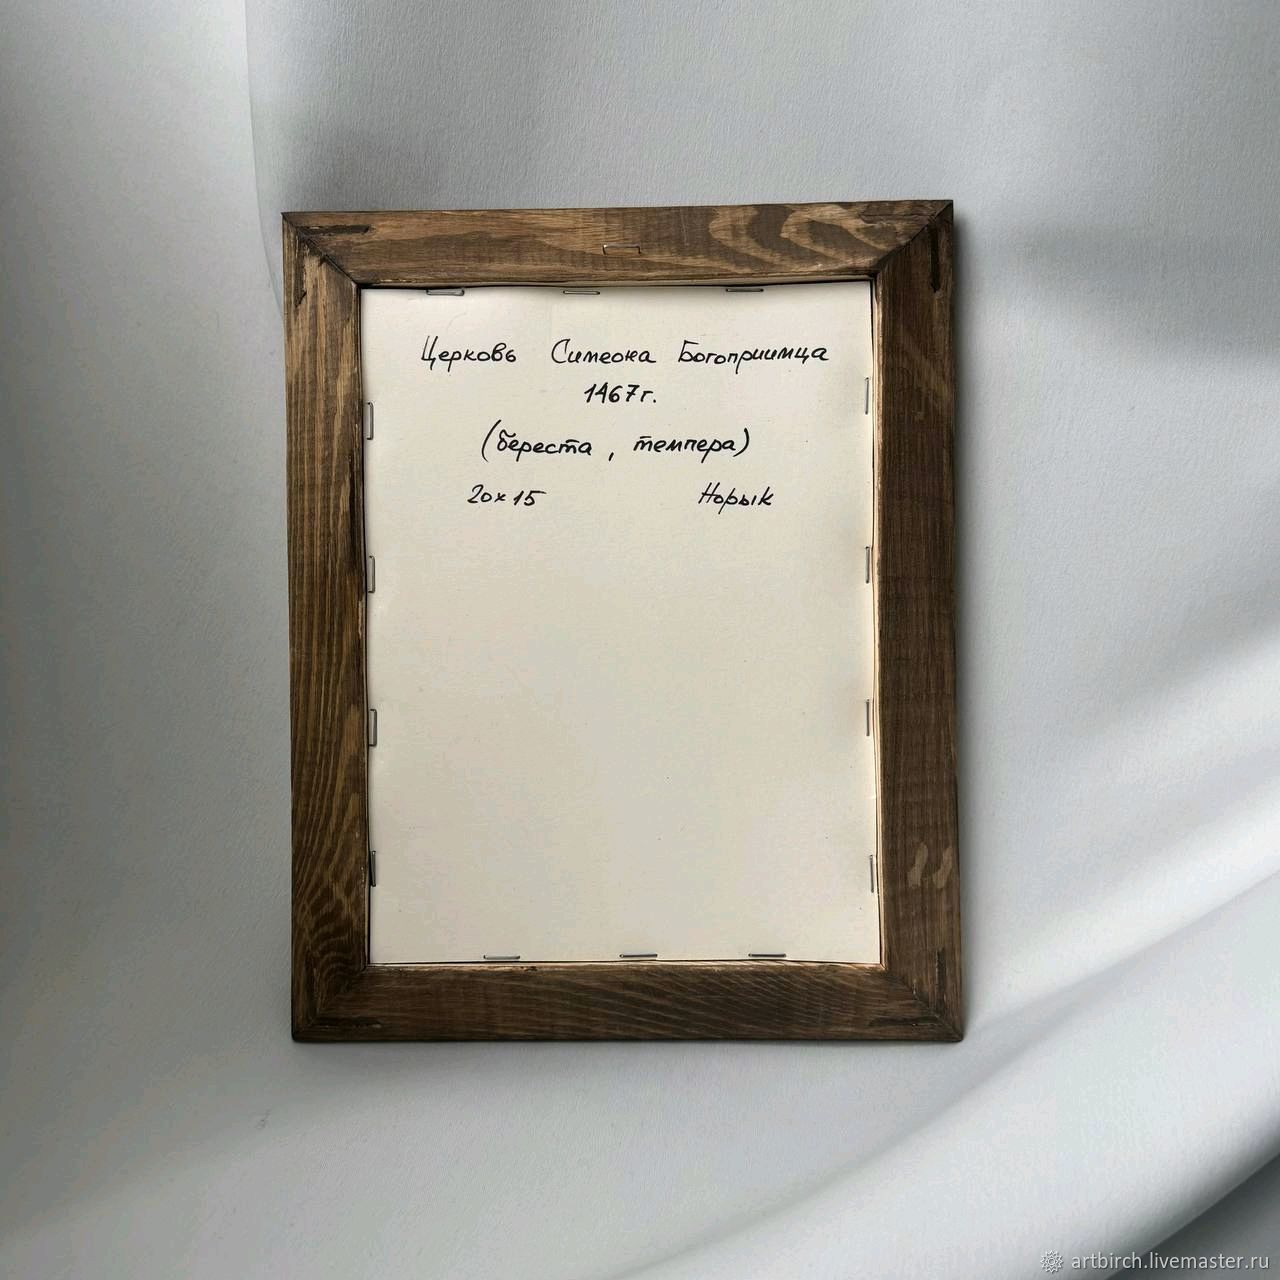 Церковь Симеона Богоприимца
1467г.
(береста, темпера)
20x15 Норык
artbirch.livemaster.ru